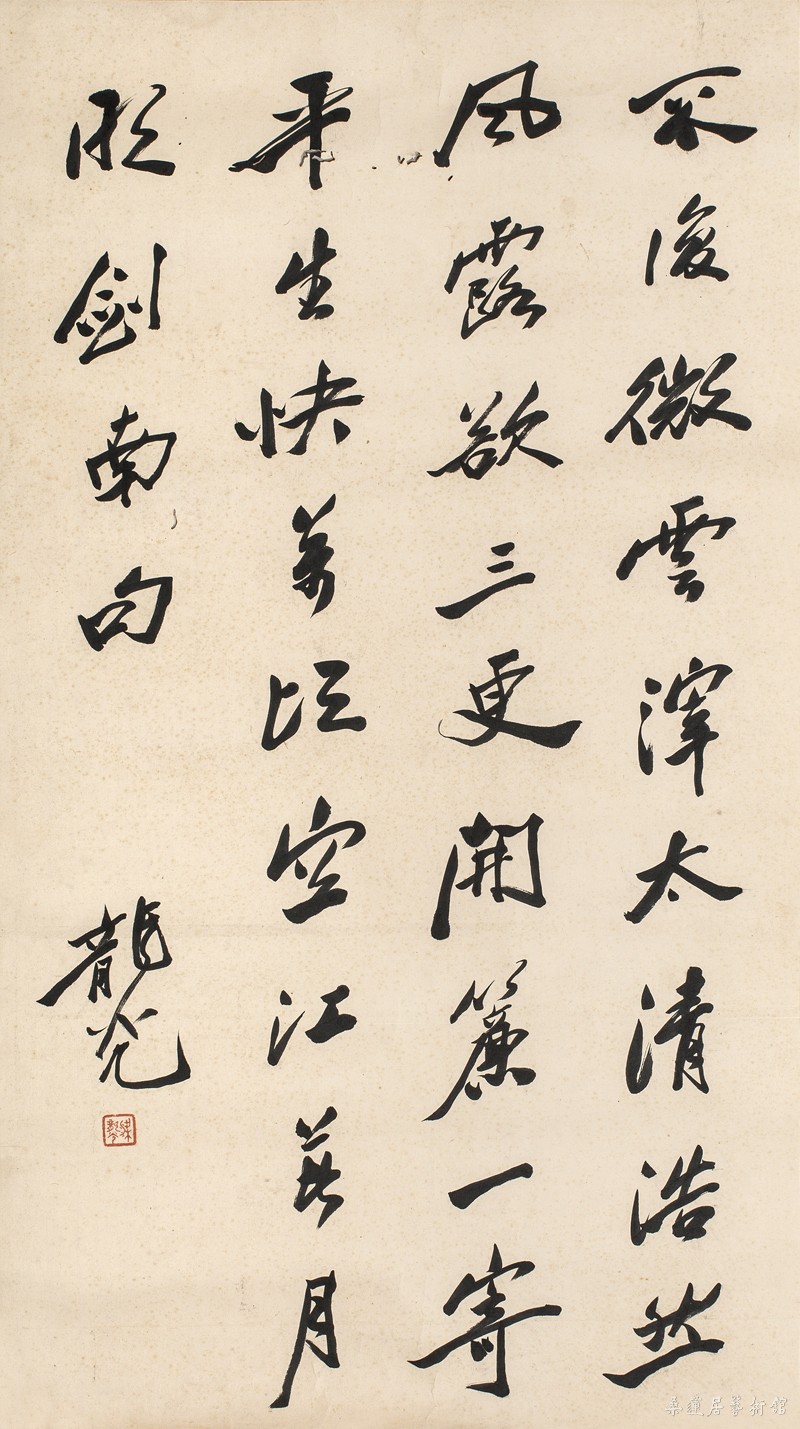 不復微雲滓太清浩然
風露欲三更開簾一寄
平生快萬頃空江著月
明劍南句 龍光
桑蓮居藝術館